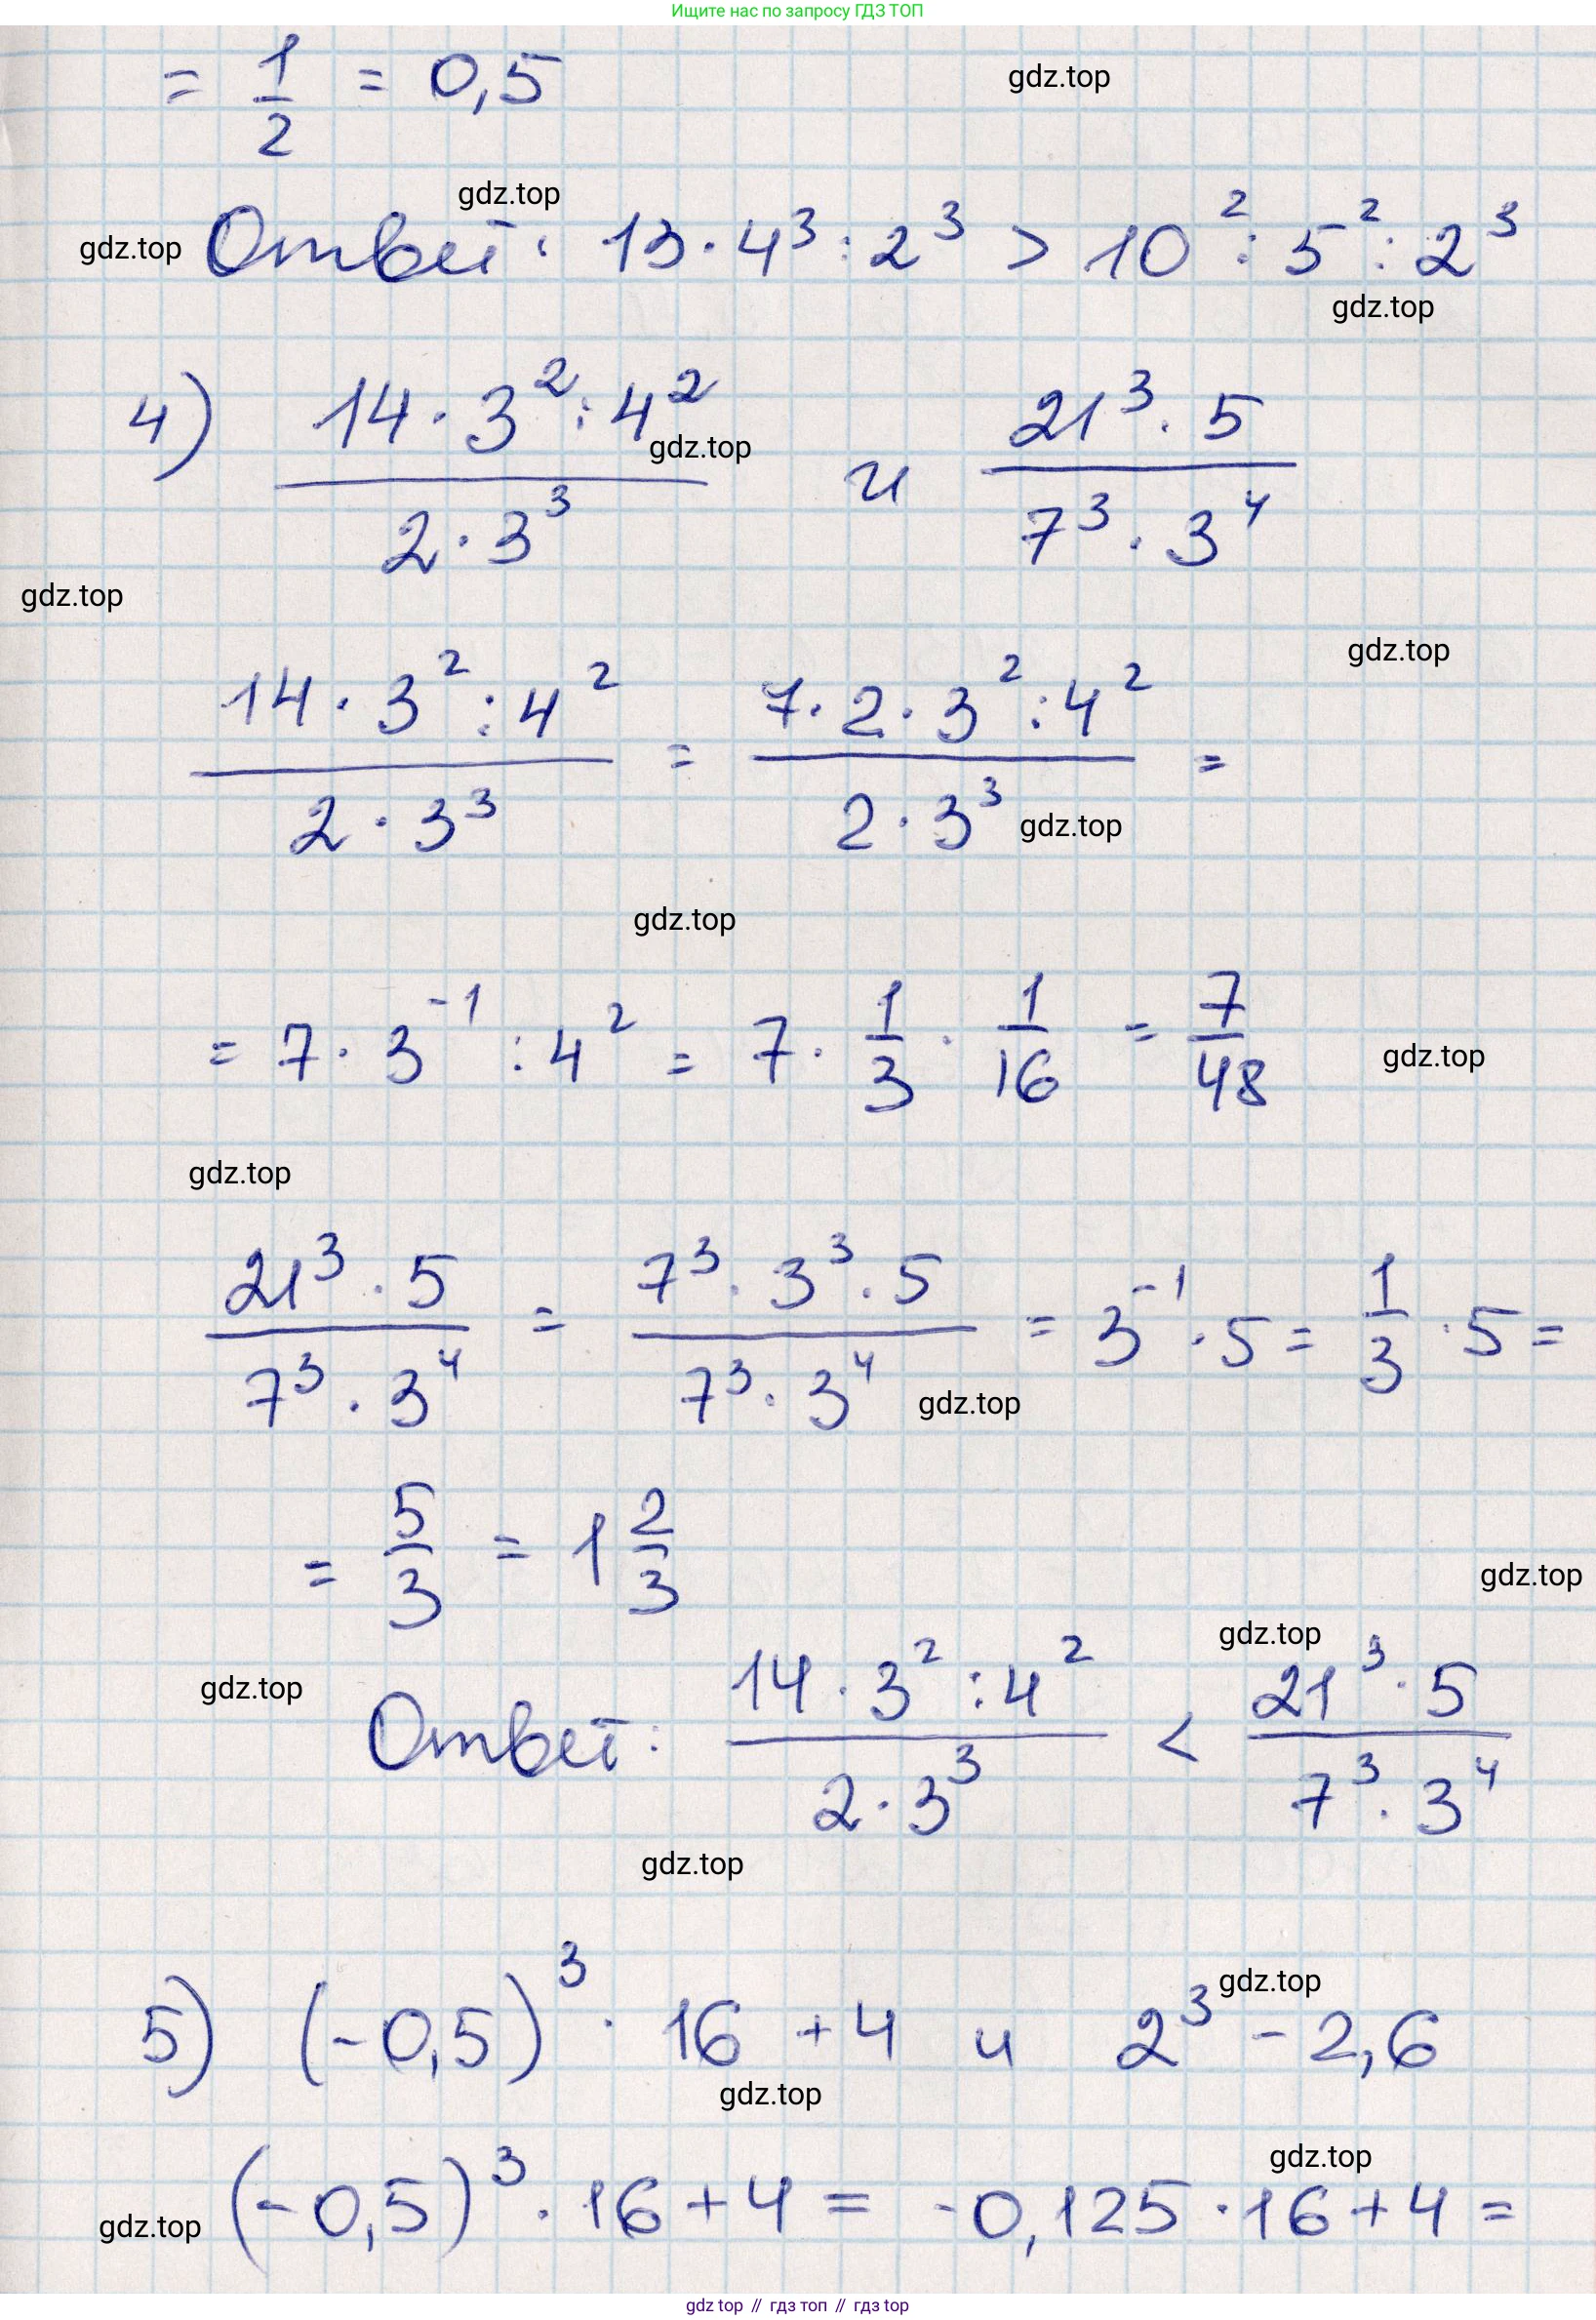 Ищите нас по запросу ГДЗ ТОП
= 1/2 = 0,5
gdz.top
gdz.top
gdz.top
Ответ: 13 · 4³ : 2³ > 10² : 5² : 2³
gdz.top
4) (14 · 3² : 4²)/(2 · 3³) и (21³ · 5)/(7³ · 3⁴)
gdz.top
gdz.top
gdz.top
(14 · 3² : 4²)/(2 · 3³) = (7 · 2 · 3² : 4²)/(2 · 3³) =
gdz.top
gdz.top
= 7 · 3⁻¹ : 4² = 7 · 1/3 · 1/16 = 7/48
gdz.top
gdz.top
(21³ · 5)/(7³ · 3⁴) = (7³ · 3³ · 5)/(7³ · 3⁴) = 3⁻¹ · 5 = 1/3 · 5 =
gdz.top
= 5/3 = 1 2/3
gdz.top
gdz.top
gdz.top
Ответ: (14 · 3² : 4²)/(2 · 3³) < (21³ · 5)/(7³ · 3⁴)
gdz.top
gdz.top
5) (-0,5)³ · 16 + 4 и 2³ - 2,6
gdz.top
gdz.top
gdz.top
(-0,5)³ · 16 + 4 = -0,125 · 16 + 4 =
gdz top // гдз топ // гдз top